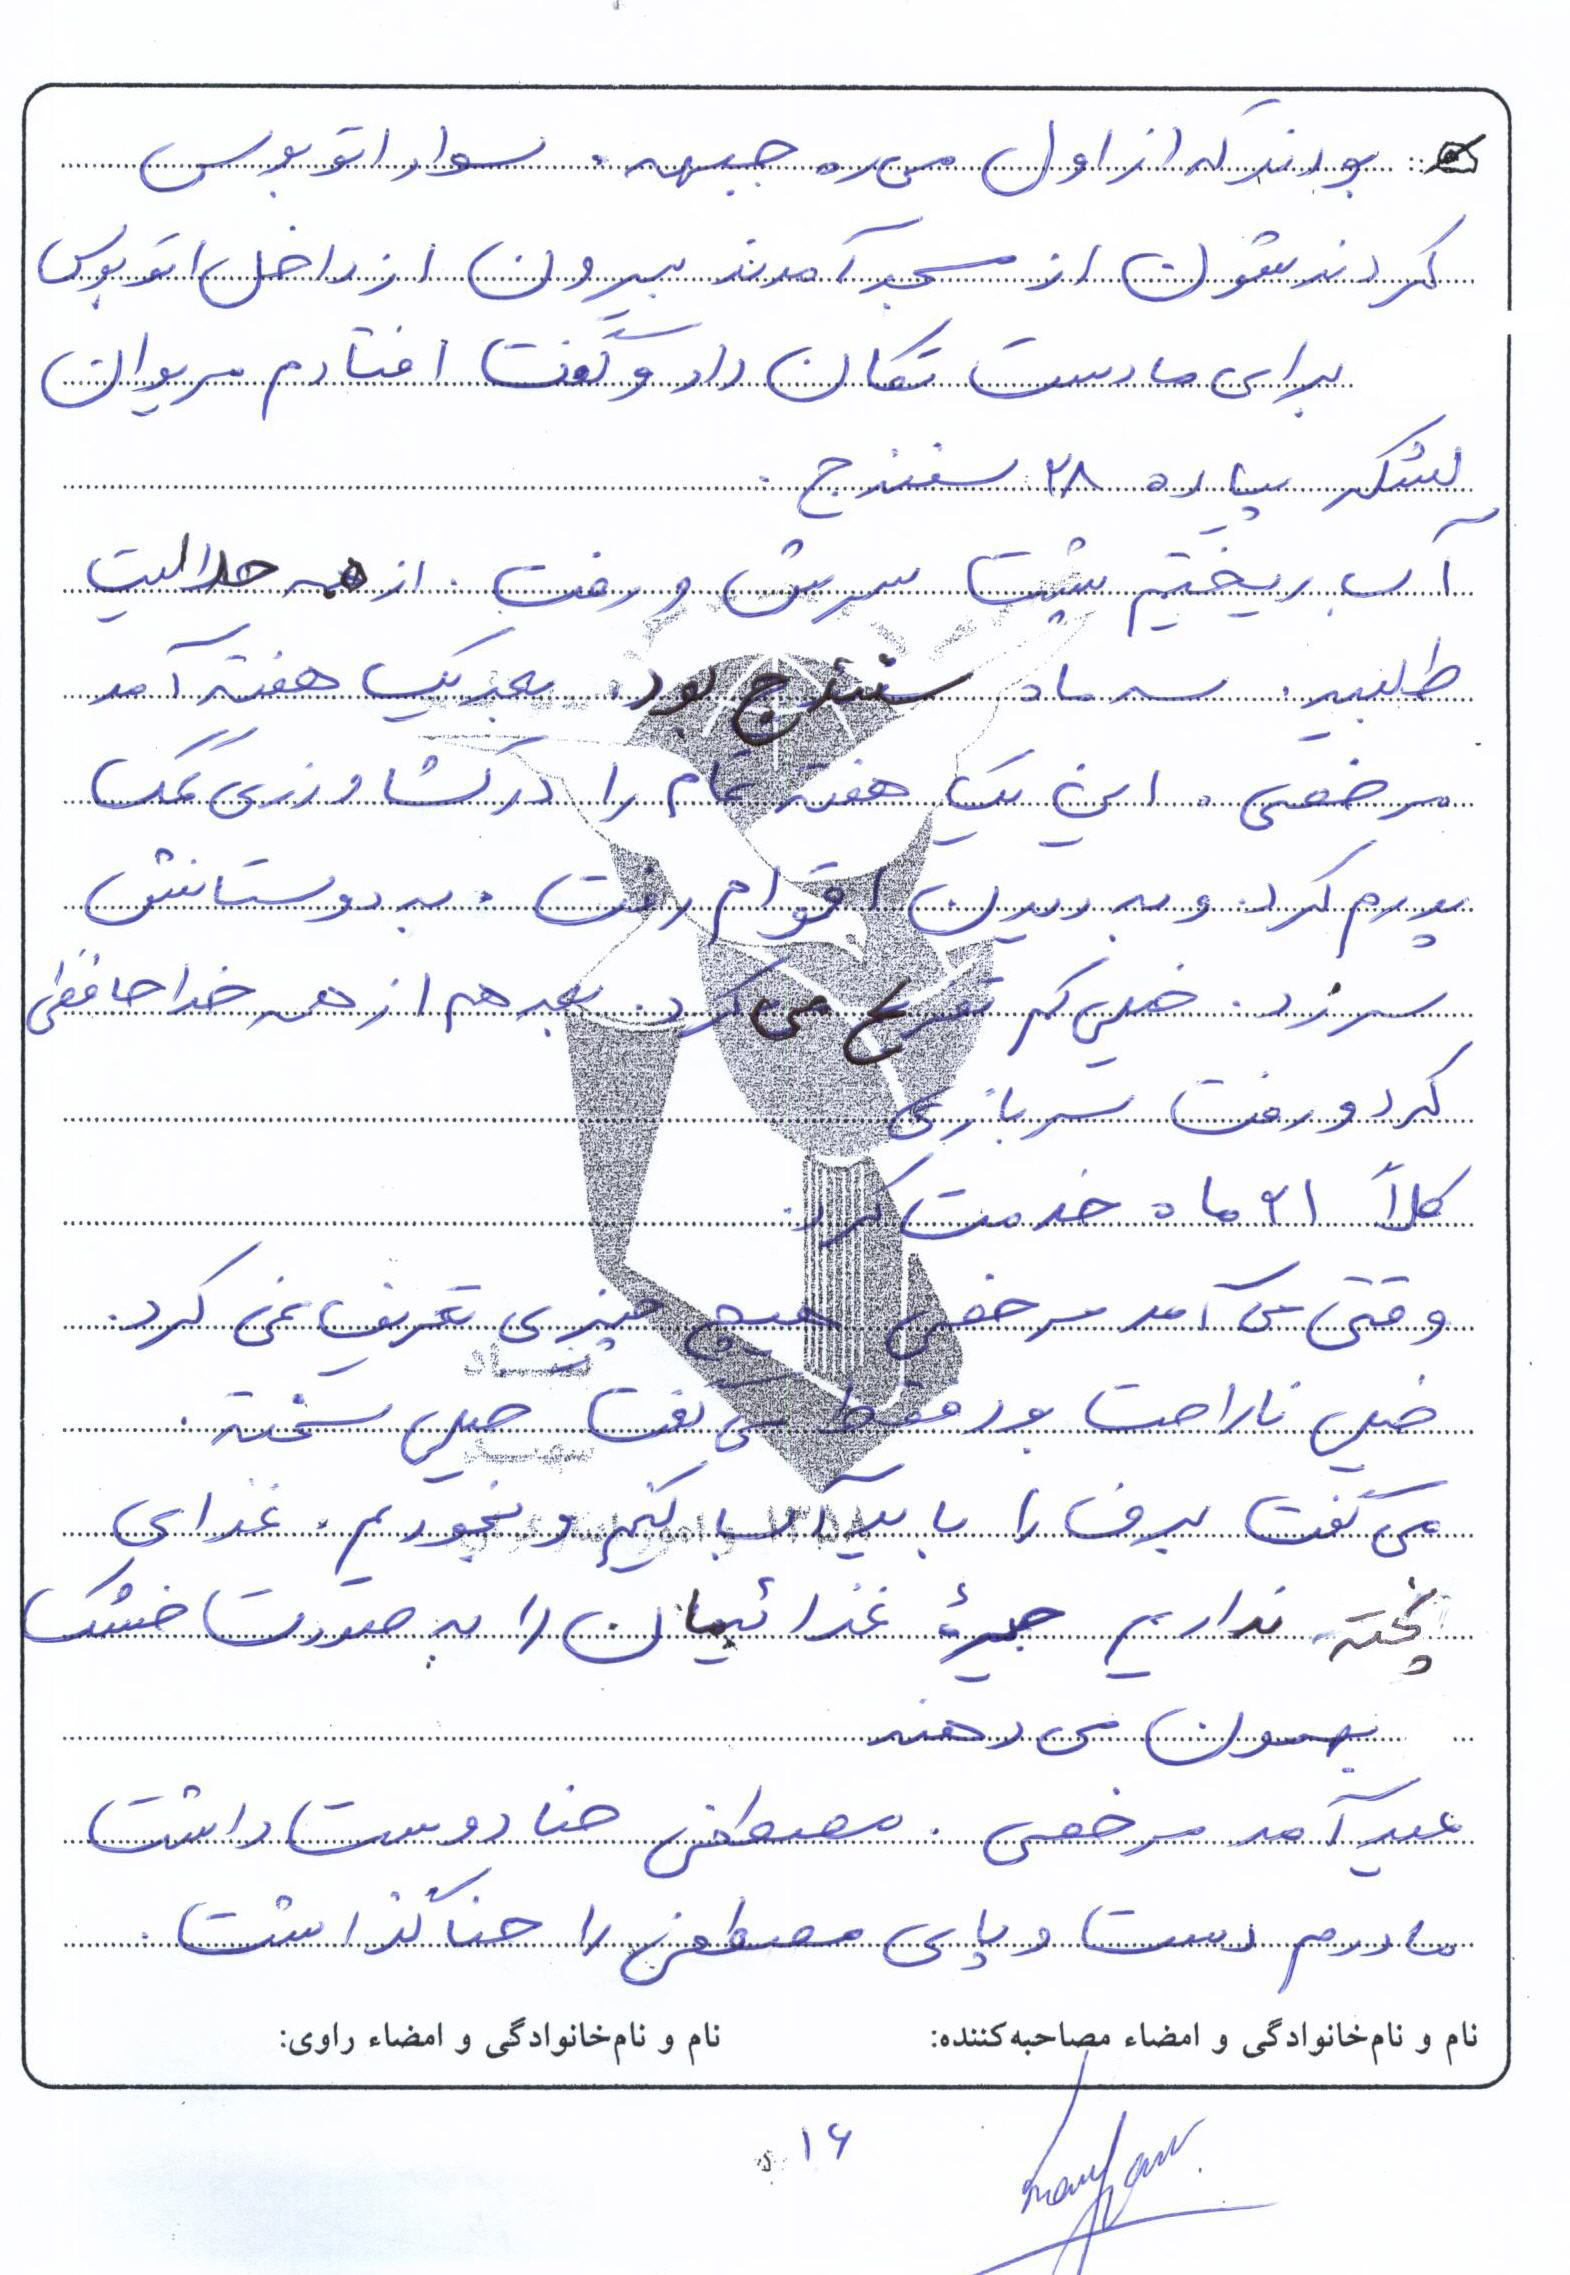 بودند که از اول می ره جبهه . سوار اتوبوس
کردندشون از مسجد آمدند بیرون از داخل اتوبوس
برای ما دست تکان داد و گفت افتادم مریوان
لشکر پیاده ۲۸ سنندج .
آب ریختیم پشت سرش و رفت . از همه حلالیت
طلبید . سه ماه سنندج بود . بعد یک هفته آمد
مرخصی . این یک هفته تمام را در کشاورزی کمک
پدرم کرد . و به دیدن اقوام رفت . به دوستانش
سر زد . خیلی کم تفریح می کرد . بعد هم از همه خداحافظی
کرد و رفت سربازی
کلاً ۲۱ ماه خدمت کرد .
وقتی می آمد مرخصی هیچ چیزی تعریف نمی کرد .
خیلی ناراحت بود فقط می گفت خیلی سخته .
می گفت برف را باید آب کنیم و بخوریم . غذای
پخته نداریم جیرهٔ غذائیمان را به صورت خشک
بهمون می دهند
عید آمد مرخصی . مصطفی حنا دوست داشت
مادرم دست و پای مصطفی را حنا گذاشت .
نام و نام‌خانوادگی و امضاء مصاحبه‌کننده:
نام و نام‌خانوادگی و امضاء راوی:
۱۶